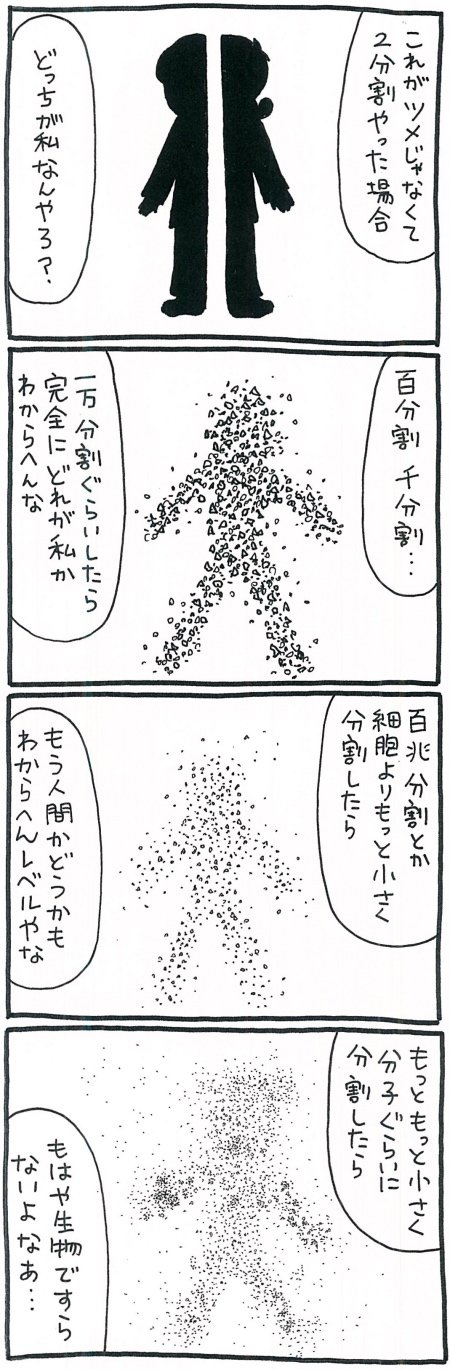 これがツメじゃなくて
2分割やった場合
どっちが私なんやろ？
百分割 千分割…
一万分割ぐらいしたら
完全にどれが私か
わからへんな
百兆分割とか
細胞よりもっと小さく
分割したら
もう人間かどうかも
わからへんレベルやな
もっともっと小さく
分子ぐらいに
分割したら
もはや生物ですら
ないよなあ…